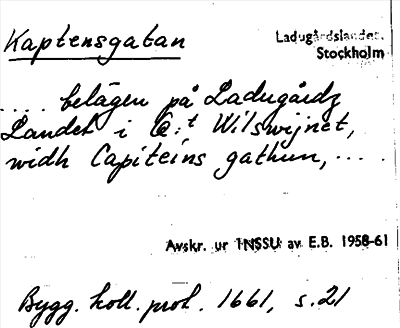 Kaptensgatan
Ladugårdslandet.
Stockholm
.... belägen på Ladugårdz
Landet i Q:t Wilswijnet,
widh Capiteins gathun, ....
Avskr. ur INSSU av E.B. 1958-61
Bygg. koll. prot. 1661, s. 21